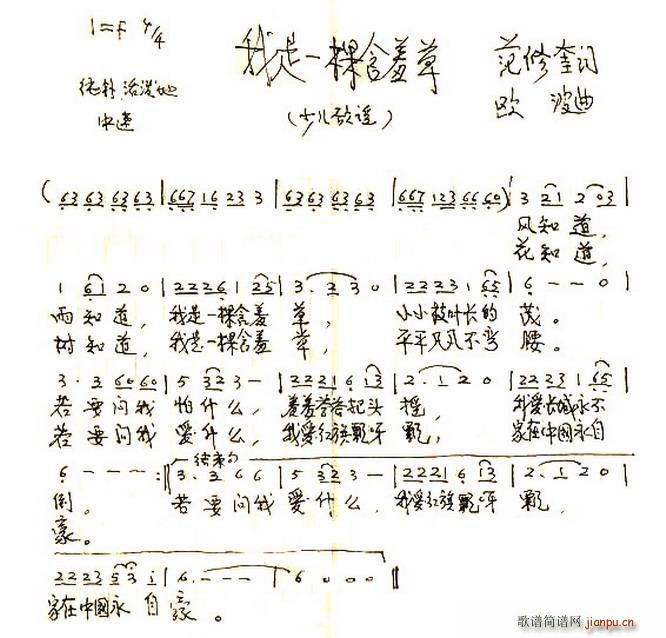 1=F 4/4
我是一棵含羞草
范修奎词
纯朴 活泼地
欧 波曲
中速
(少儿歌谣)
(63 63 63 63 | 667 16 23 3 | 63 63 63 63 | 667 123 66 60) | 3 21 2 03 |
风知道,
花知道,
1 61 2 0 | 2226 1 25 | 3·2 3 0 | 2223 1 65 | 6 - - 0 |
雨知道, 我是一棵含羞 草, 小小枝叶长的 茂。
树知道, 我是一棵含羞 草, 平平凡凡不弯 腰。
3·2 60 60 | 5 32 3 - | 2221 6 13 | 2·1 2 0 | 2223 1 65 |
若要问我 怕什么, 羞羞答答把头 摇, 我爱长城永不
若要问我 爱什么, 我爱红旗飘呀 飘, 家在中国永自
6 - - - :‖ 3·2 6 6 | 5 32 3 - | 2221 6 13 | 2·1 2 0 |
结束句
倒。 若要问我 爱什么, 我爱红旗飘呀 飘,
豪。
2223 53 i | 6· - - - | 6 0 0 0 ‖
家在中国永 自 豪。
歌谱简谱网
jianpu.cn